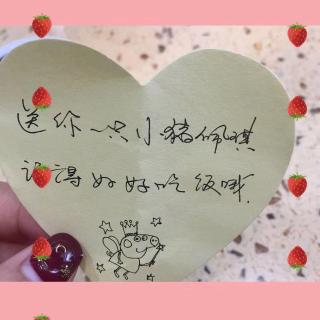 送你一只小猪佩琪
记得好好吃饭哦.